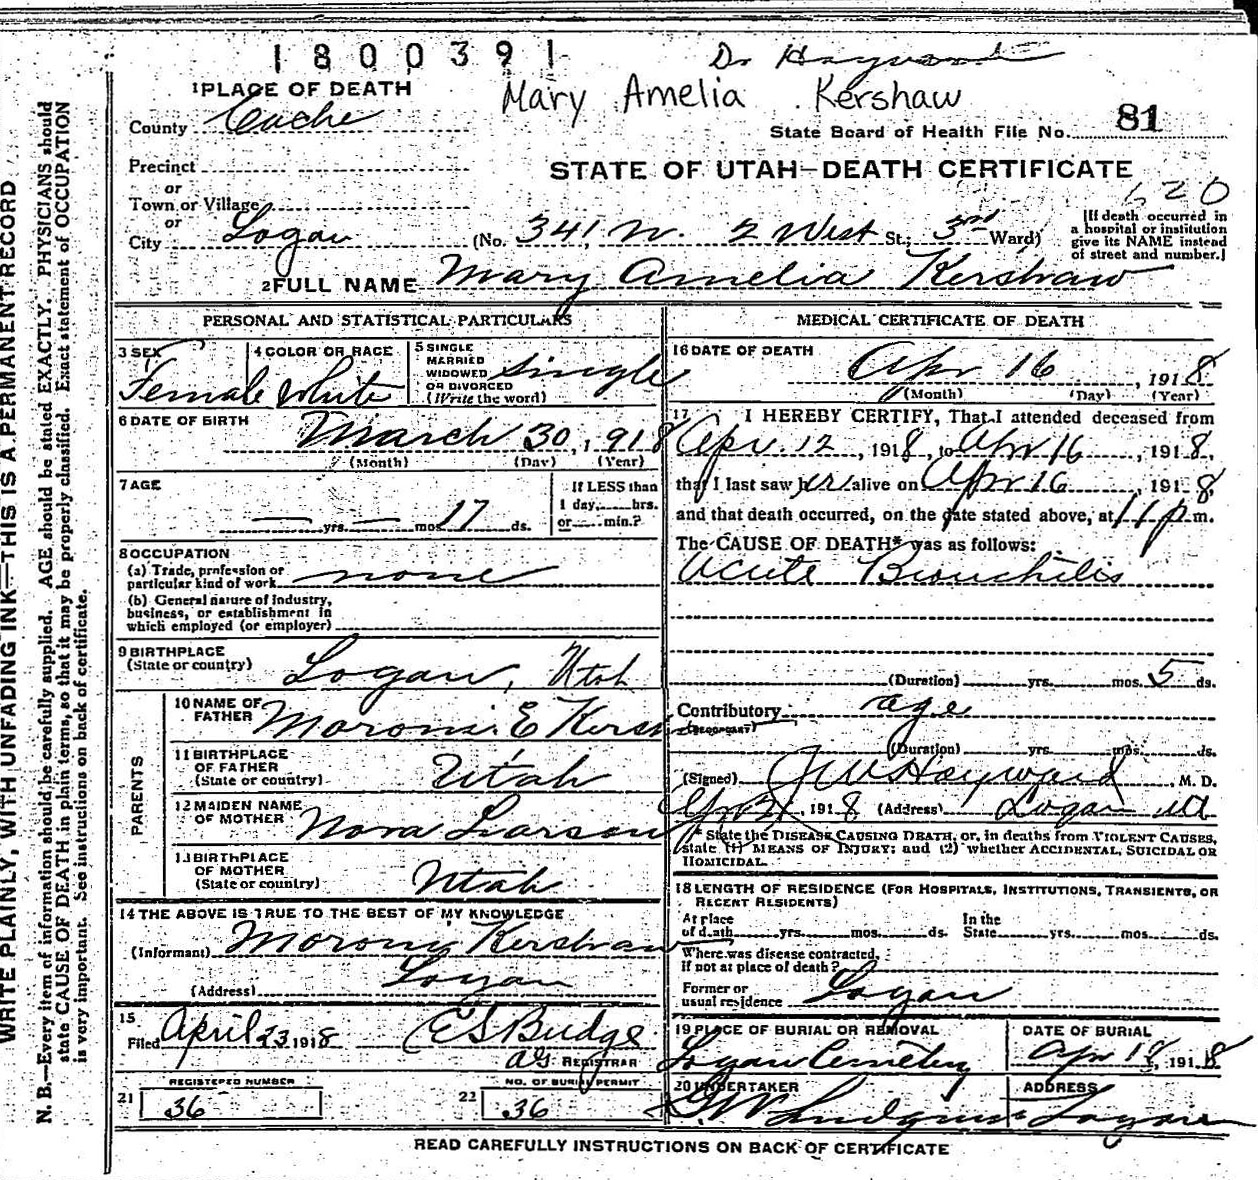 1800391
Dr Hayward
Mary Amelia Kershaw
1 PLACE OF DEATH
County Cache
State Board of Health File No. 81
Precinct
STATE OF UTAH—DEATH CERTIFICATE
or
Town or Village
620
or
City Logan (No. 341 N. 2 West St.; 3rd Ward)
[If death occurred in
a hospital or institution
give its NAME instead
of street and number.]
2 FULL NAME Mary Amelia Kershaw
PERSONAL AND STATISTICAL PARTICULARS
3 SEX Female
4 COLOR OR RACE White
5 SINGLE
MARRIED
WIDOWED
OR DIVORCED
(Write the word) Single
6 DATE OF BIRTH March 30, 1918
(Month) (Day) (Year)
7 AGE
— yrs. — mos. 17 ds.
If LESS than
1 day, hrs.
or min.?
8 OCCUPATION
(a) Trade, profession or
particular kind of work none
(b) General nature of industry,
business, or establishment in
which employed (or employer)
9 BIRTHPLACE
(State or country) Logan, Utah
PARENTS
10 NAME OF
FATHER Moroni E Kersh
11 BIRTHPLACE
OF FATHER
(State or country) Utah
12 MAIDEN NAME
OF MOTHER Nora Larson
13 BIRTHPLACE
OF MOTHER
(State or country) Utah
14 THE ABOVE IS TRUE TO THE BEST OF MY KNOWLEDGE
(Informant) Morony Kershaw
(Address) Logan
15
Filed April 23 1918 E S Budge
REGISTRAR
REGISTERED NUMBER
21 36
NO. OF BURIAL PERMIT
22 36
MEDICAL CERTIFICATE OF DEATH
16 DATE OF DEATH
Apr 16, 1918
(Month) (Day) (Year)
17 I HEREBY CERTIFY, That I attended deceased from
Apr. 12, 1918, to Apr 16, 1918,
that I last saw her alive on Apr 16, 1918,
and that death occurred, on the date stated above, at 11 p m.
The CAUSE OF DEATH* was as follows:
Acute Bronchitis
(Duration) yrs. mos. 5 ds.
Contributory age
(SECONDARY)
(Duration) yrs. mos. ds.
(Signed) J W Hayward, M. D.
1918 (Address) Logan Ut
* State the DISEASE CAUSING DEATH, or, in deaths from VIOLENT CAUSES,
state (1) MEANS OF INJURY; and (2) whether ACCIDENTAL, SUICIDAL OR
HOMICIDAL.
18 LENGTH OF RESIDENCE (FOR HOSPITALS, INSTITUTIONS, TRANSIENTS, OR
RECENT RESIDENTS)
At place
of death yrs. mos. ds.
In the
State yrs. mos. ds.
Where was disease contracted,
if not at place of death?
Former or
usual residence Logan
19 PLACE OF BURIAL OR REMOVAL
Logan Cemetery
DATE OF BURIAL
Apr 18, 1918
20 UNDERTAKER
ADDRESS
Logan
READ CAREFULLY INSTRUCTIONS ON BACK OF CERTIFICATE
WRITE PLAINLY, WITH UNFADING INK—THIS IS A PERMANENT RECORD
N. B.—Every item of information should be carefully supplied. AGE should be stated EXACTLY. PHYSICIANS should
state CAUSE OF DEATH in plain terms, so that it may be properly classified. Exact statement of OCCUPATION
is very important. See instructions on back of certificate.